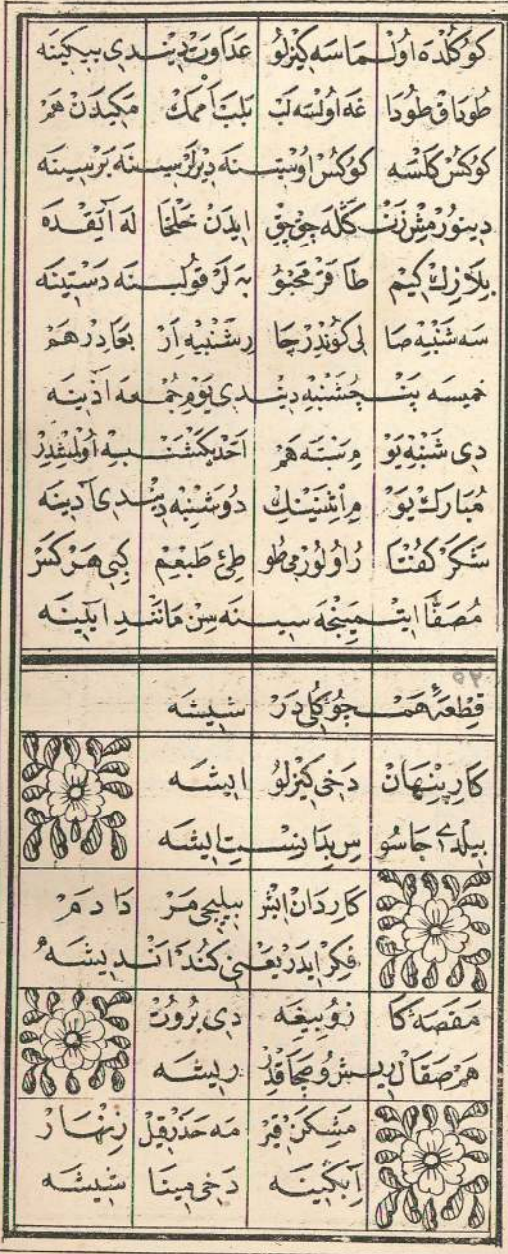 كوكلده اولماسه كيزلو عداوت ديندى بيكينه
طوداق طودا غه اولسه لب بلب اممك مكيدن هم
كوكس كلسه كوكس اوستنه ديرلر سينه بر سينه
بلازك كيم
سه شنبه صا لى كوندر چا رشنبه ار بعادر هم
خميسه پنجشنبه ديندى يوم جمعه اذينه
دى شنبه يو هم احد يكشنبه اولمشدر
مبارك يو م اثنينك دوشنبه ديندى آدينه
شكر كفتا ر اولور مى طو طئ طبعم كبى هر كس
مصفا ايتمينجه سينه سن مانند ايينه
قطعۀ همچو كلى در شيشه
كار پنهان دخى كيزلو ايشه
بيلدى جاسو س بدانست ايشه
كاردان ايش بيليجى مر دادم
فكر ايدر يعنى كند انديشه
مقصه كا ز و بيغه دى بروت
هم صقال ريش و صچاقدر ريشه
مشكن قير مه حذر قيل زنهار
آبكينه دخى مينا شيشه